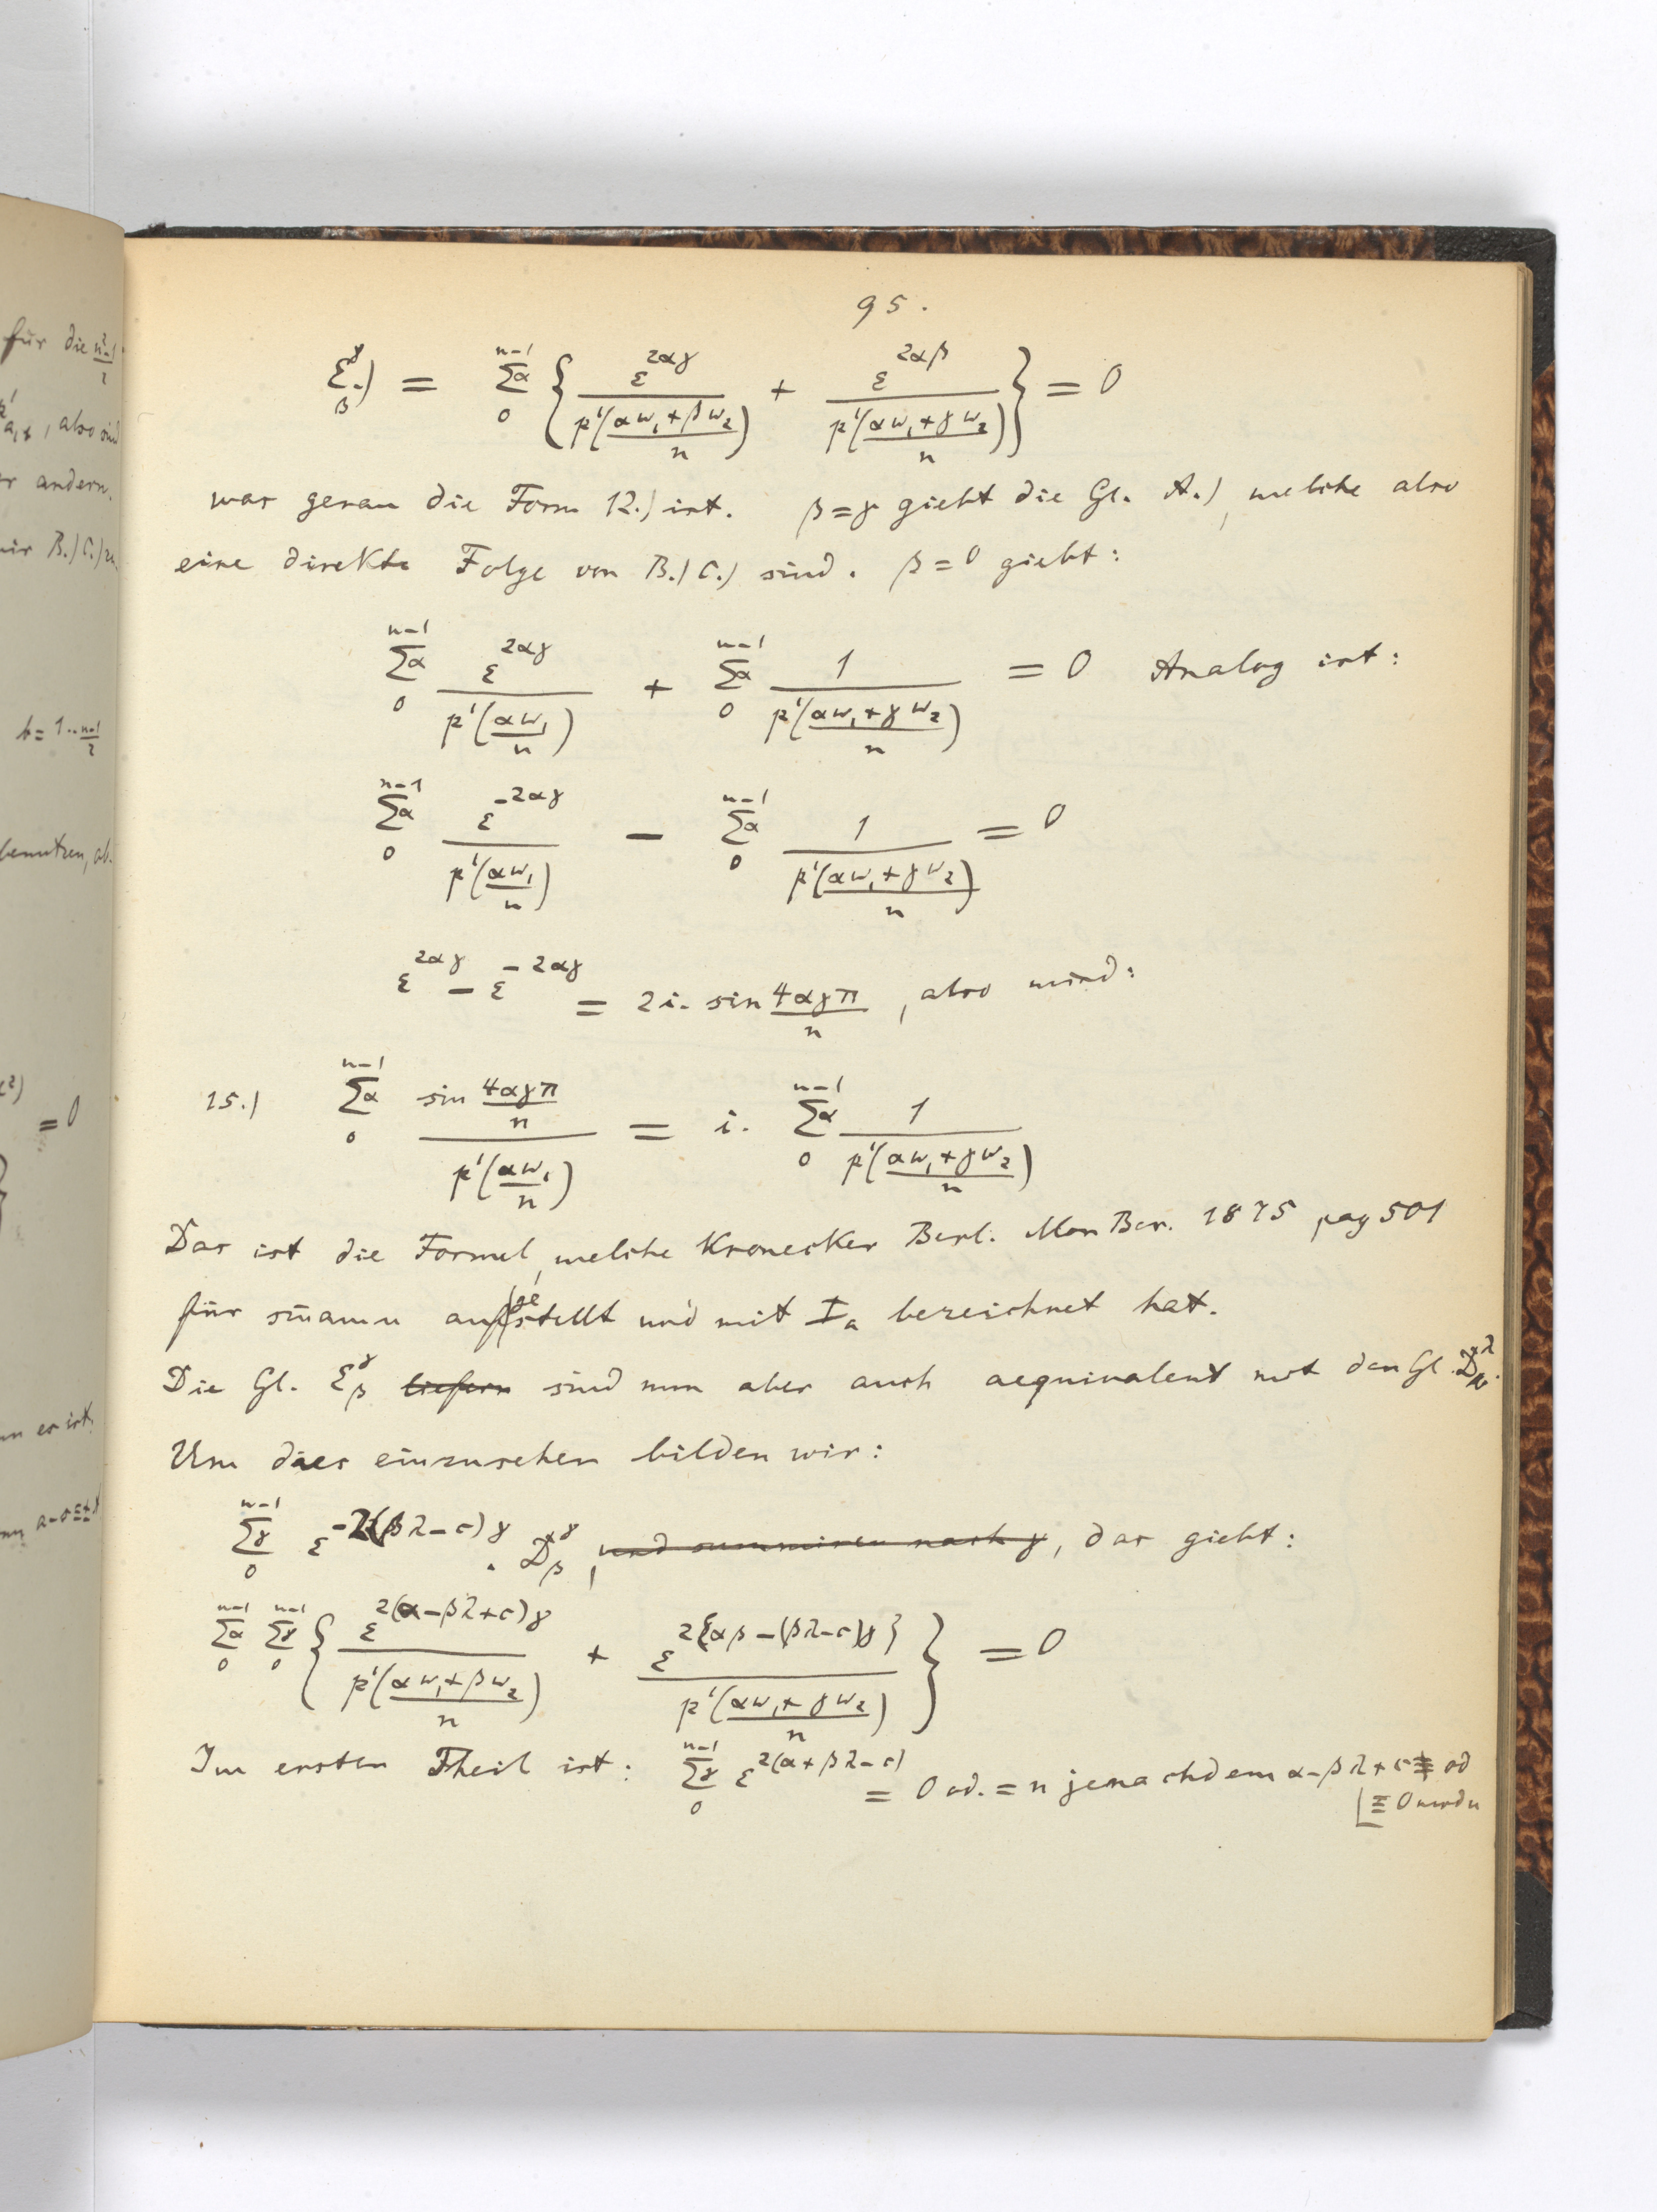 für die (n²-1)/2
p'a,r, also sind
er andern.
wir B.) C.) zu
b = 1··(n-1)/2
benutzen, ab.
= 0
nn es ist,
95.
ℰ^γ_β.) = Σα_0^{n-1} { ε^{2αγ} / p'((αw₁+βw₂)/n) + ε^{2αβ} / p'((αw₁+γw₂)/n) } = 0
was genau die Form 12.) ist. β=γ giebt die Gl. A.), welche also
eine direkte Folge von B.) C.) sind. β=0 giebt:
Σα_0^{n-1} ε^{2αγ} / p'(αw₁/n) + Σα_0^{n-1} 1 / p'((αw₁+γw₂)/n) = 0 Analog ist:
Σα_0^{n-1} ε^{-2αγ} / p'(αw₁/n) − Σα_0^{n-1} 1 / p'((αw₁+γw₂)/n) = 0
ε^{2αγ} − ε^{-2αγ} = 2i. sin 4αγπ/n, also wird:
15.) Σα_0^{n-1} sin(4αγπ/n) / p'(αw₁/n) = i. Σα_0^{n-1} 1 / p'((αw₁+γw₂)/n)
Das ist die Formel, welche Kronecker Berl. Mon Ber. 1875 pag 501
für sinamu aufgestellt und mit I_a bezeichnet hat.
Die Gl. ℰ^γ_β liefern sind nun aber auch aequivalent mit den Gl. D^λ.
Um dies einzusehen bilden wir:
Σγ_0^{n-1} ε^{-2(βλ-c)γ} . D^γ_β, und summiren nach γ, das giebt:
Σα_0^{n-1} Σγ_0^{n-1} { ε^{2(α-βλ+c)γ} / p'((αw₁+βw₂)/n) + ε^{2{αβ-(βλ-c)γ}} / p'((αw₁+γw₂)/n) } = 0
Im ersten Theil ist: Σγ_0^{n-1} ε^{2(α+βλ-c)} = 0 od. = n jenachdem α-βλ+c ≢ od
≡ 0 mod n